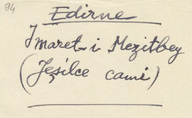 94
Edirne
Jmaret-i Mezitbey
(Jeşilce cami)